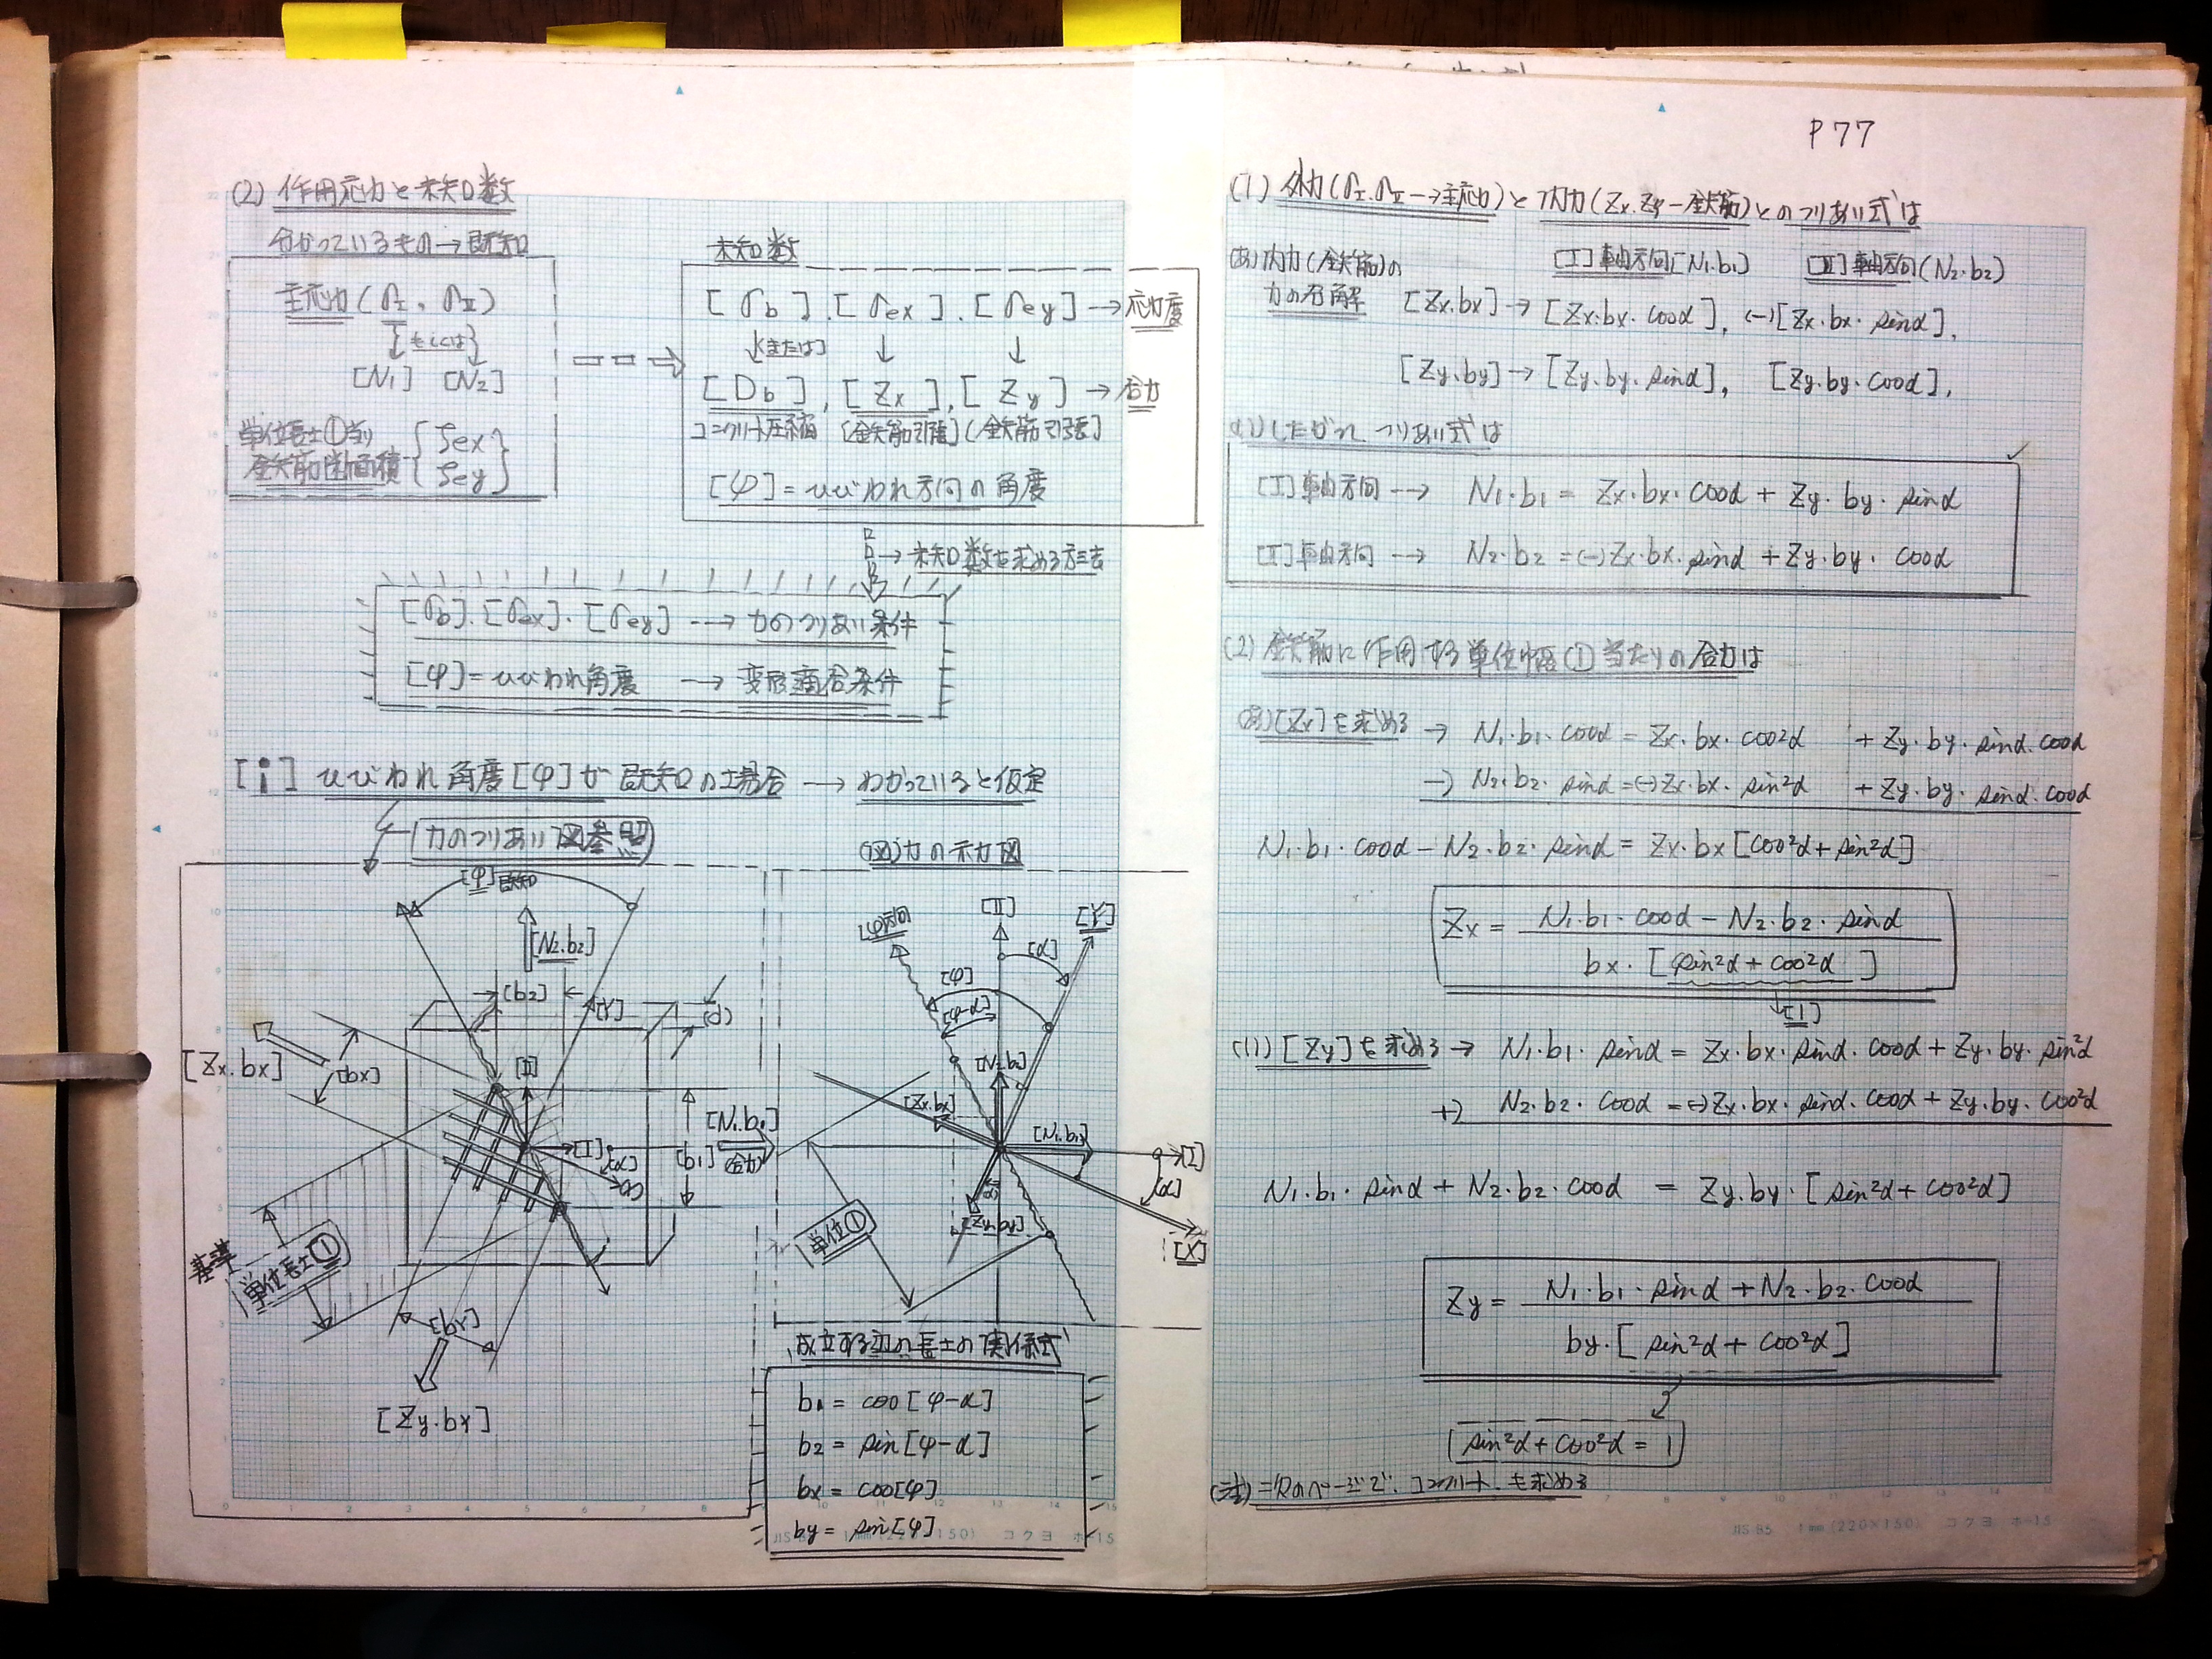 P77
(2) 作用応力と未知数
分かっているもの→既知
主応力(σI、σII)
{もしくは}
[N1] [N2]
単位長さ①当り
鉄筋断面積 {ζex
ζey}
未知数
[σb].[σex].[σey]→応力度
↓(または) ↓ ↓
[Db],[Zx],[Zy]→合力
コンクリート圧縮 (鉄筋引張)(鉄筋引張)
[φ]=ひびわれ方向の角度
→未知数を求める方法
[σb].[σex].[σey]---→力のつりあい条件
[φ]=ひびわれ角度 →変形適合条件
[i] ひびわれ角度[φ]が既知の場合→わかっていると仮定
力のつりあい図参照
(図)力の示力図
[φ]既知
[N2.b2]
[b2]
[Y]
(d)
[Zx.bx]
[bx]
[II]
[I]
[α]
(X)
[b1]
[N1.b1]
(合力)
基準
単位長さ①
[by]
[Zy.bY]
[φ]方向
[II]
[Y]
[α]
[φ]
[φ-α]
[N2.b2]
[Zx.bx]
[N1.b1]
[I]
[α]
[X]
[Zy.by]
単位①
成立する辺の長さの関係式
b1 = cos[φ-α]
b2 = sin[φ-α]
bx = cos[φ]
by = sin[φ]
JIS B5 1mm(220×150) コクヨ ホ-15
(1) 外力(σI.σII→主応力)と内力(Zx.Zy-鉄筋)とのつりあい式は
(あ)内力(鉄筋)の [I]軸方向[N1.b1) [II]軸方向(N2.b2)
力の分解 [Zx.bx]→[Zx.bx.cosα], (-)[Zx.bx.sinα],
[Zy.by]→[Zy.by.sinα], [Zy.by.cosα],
(い)したがって つりあい式は
[I]軸方向--→ N1.b1 = Zx.bx.cosα + Zy.by.sinα
[I]軸方向--→ N2.b2 =(-)Zx.bx.sinα + Zy.by.cosα
(2) 鉄筋に作用する単位幅①当たりの合力は
(あ)[Zx]を求める→ N1.b1.cosα = Zx.bx.cos²α + Zy.by.sinα.cosα
-) N2.b2.sinα =(-)Zx.bx.sin²α + Zy.by.sinα.cosα
N1.b1.cosα - N2.b2.sinα = Zx.bx[cos²α+sin²α]
Zx = N1.b1.cosα - N2.b2.sinα
bx.[sin²α+cos²α]
[1]
(い)[Zy]を求める→ N1.b1.sinα = Zx.bx.sinα.cosα + Zy.by.sin²α
+) N2.b2.cosα =(-)Zx.bx.sinα.cosα + Zy.by.cos²α
N1.b1.sinα + N2.b2.cosα = Zy.by.[sin²α+cos²α]
Zy = N1.b1.sinα + N2.b2.cosα
by.[sin²α+cos²α]
[sin²α+cos²α = 1]
(注)=次のページで、コンクリートを求める
JIS B5 1mm(220×150) コクヨ ホ-15